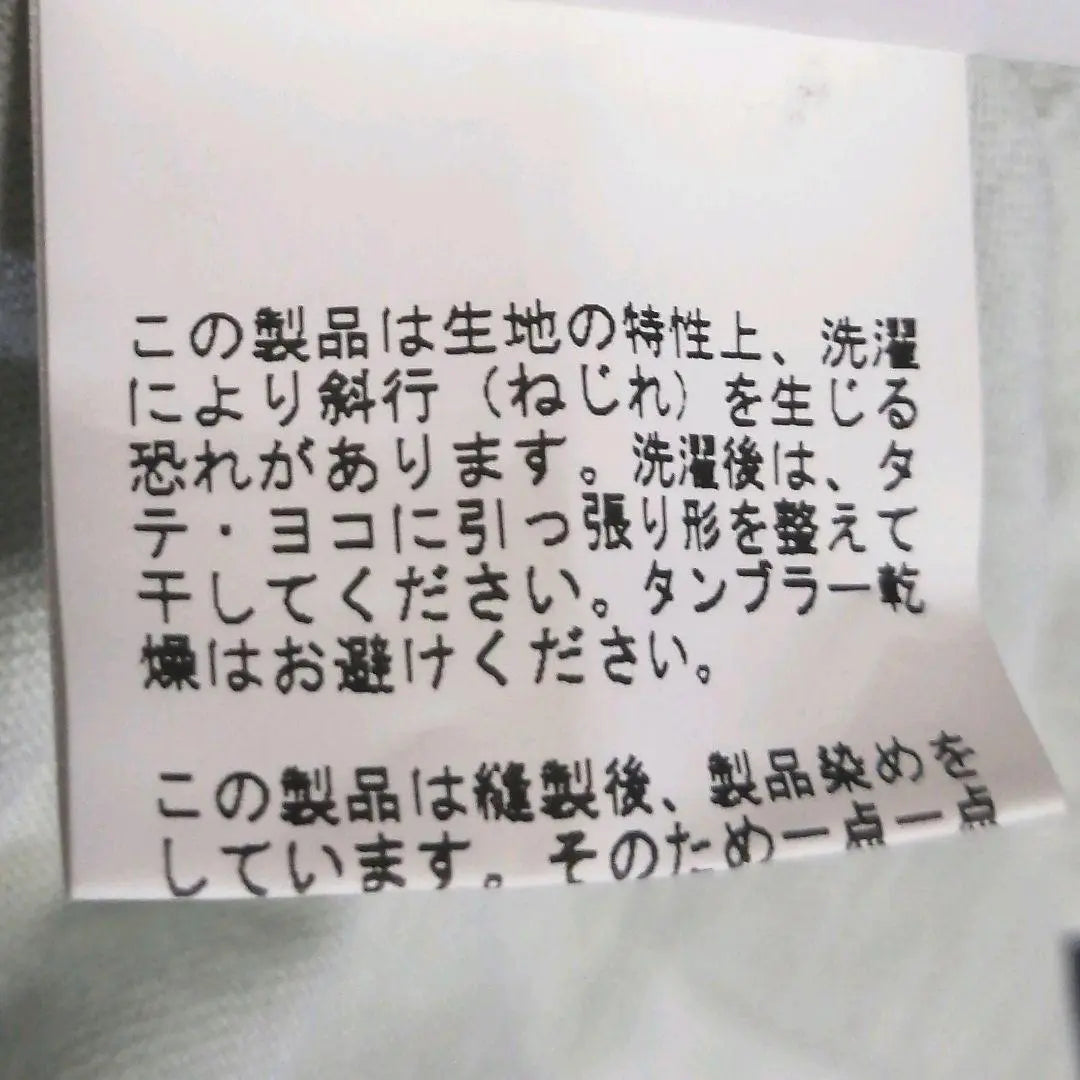 この製品は生地の特性上、洗濯
により斜行（ねじれ）を生じる
恐れがあります。洗濯後は、タ
テ・ヨコに引っ張り形を整えて
干してください。タンブラー乾
燥はお避けください。
この製品は縫製後、製品染めを
しています。そのため一点一点